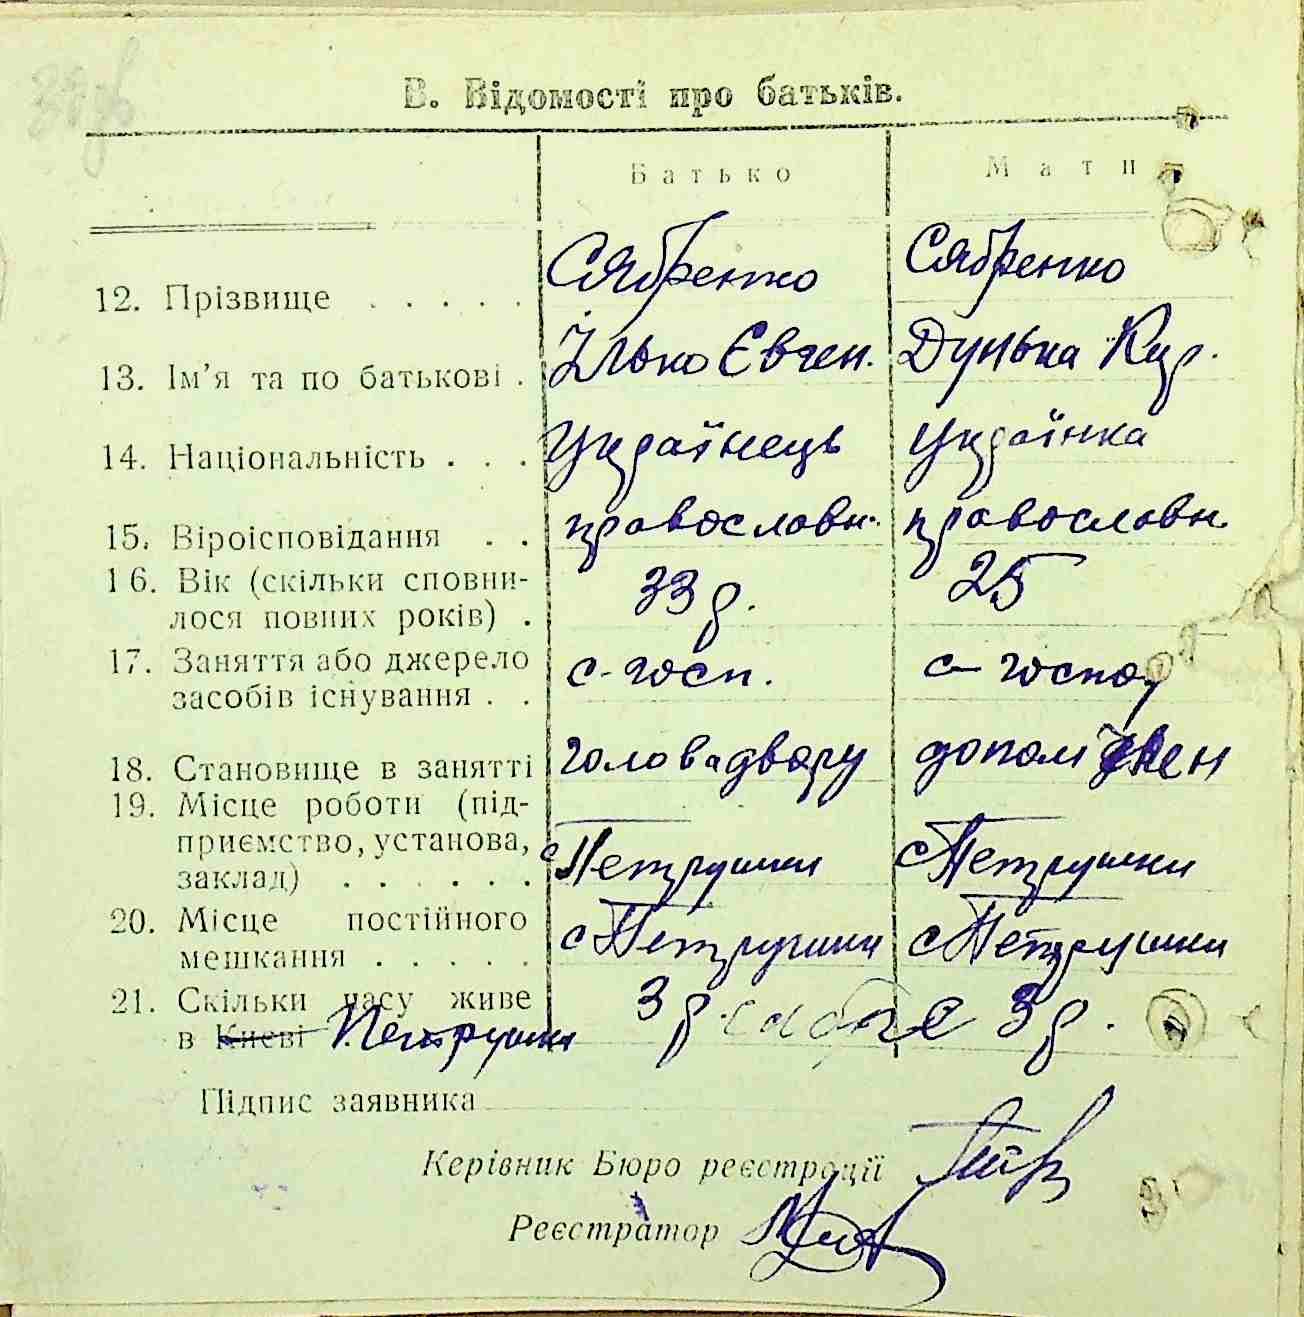 В. Відомості про батьків.
Батько Мати
12. Прізвище . . . . . Сябренко Сябренко
13. Ім'я та по батькові . Ілько Євген. Дунька Кир.
14. Національність . . . Українець Українка
15. Віроісповідання . . православн. православн.
16. Вік (скільки сповни-
лося повних років) . 33 р. 25
17. Заняття або джерело
засобів існування . . с-госп. с-госпо
18. Становище в занятті голова двору допом член
19. Місце роботи (під-
приємство, установа,
заклад) . . . . . . с Петрушки с Петрушки
20. Місце постійного
мешкання . . . . . с Петрушки с Петрушки
21. Скільки часу живе
в Києві Петрушки 3 р. 3 р.
Підпис заявника
Керівник Бюро реєстрації
Реєстратор